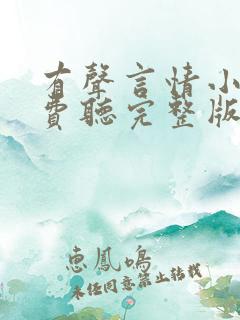 有聲言情小
費聽完整版
惠鳳鳴
未任同意禁止转载